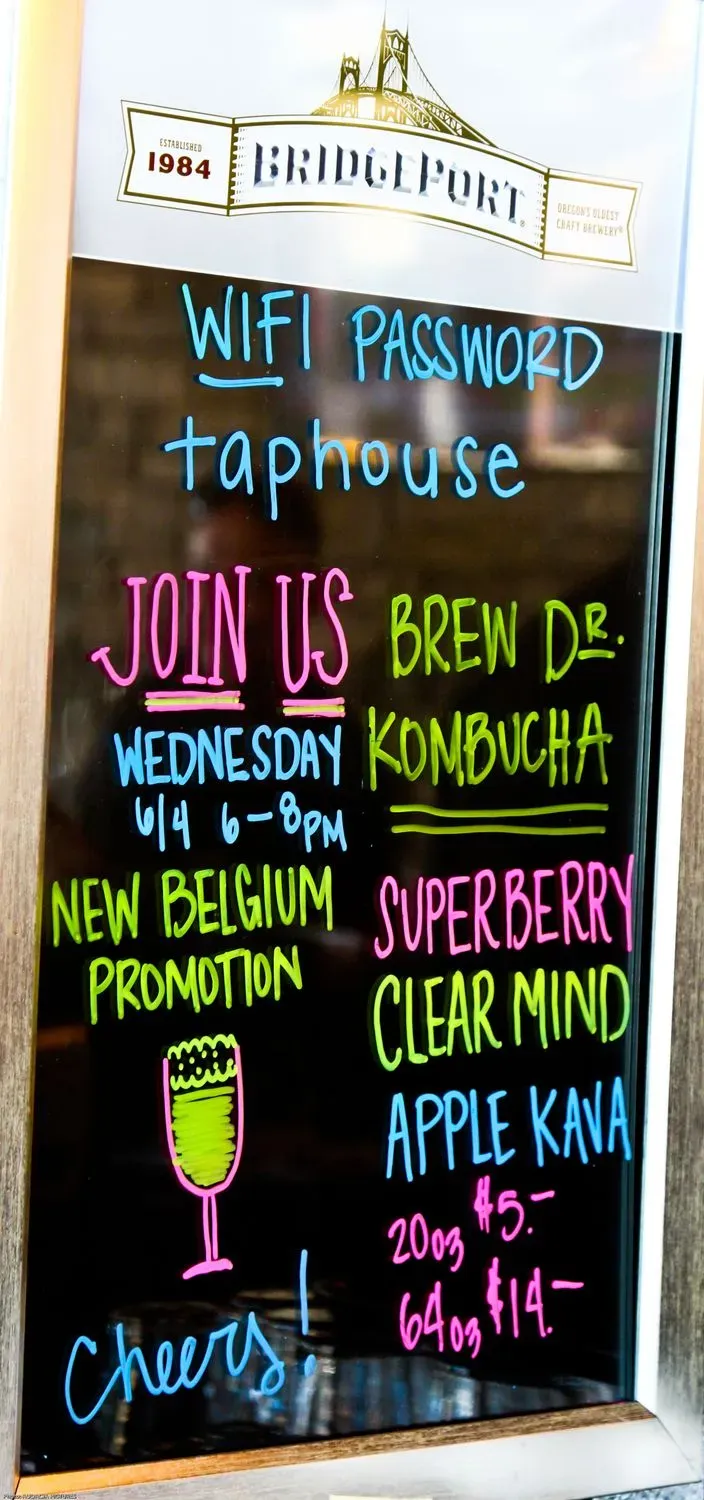 ESTABLISHED
1984
BRIDGEPORT
OREGON'S OLDEST
CRAFT BREWERY®
WIFI PASSWORD
taphouse
JOIN US
WEDNESDAY
6/4 6-8PM
NEW BELGIUM
PROMOTION
Cheers!
BREW DR.
KOMBUCHA
SUPERBERRY
CLEAR MIND
APPLE KAVA
20oz $5.-
64oz $14.-